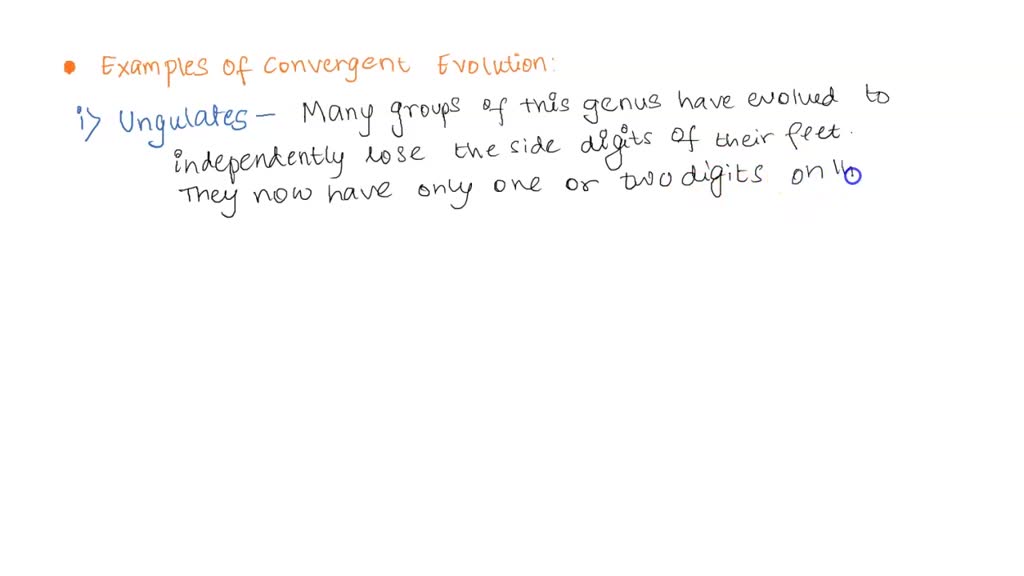 • Examples of Convergent Evolution:
i) Ungulates - Many groups of this genus have evolved to
independently lose the side digits of their feet.
They now have only one or two digits on